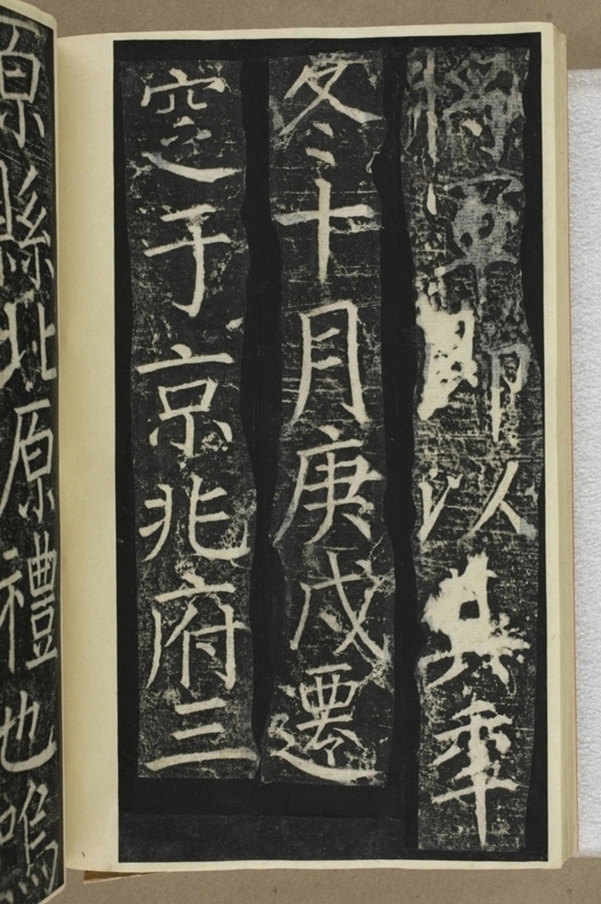 將軍即以其年
冬十月庚戌遷
窆于京兆府三
原縣北原禮也嗚